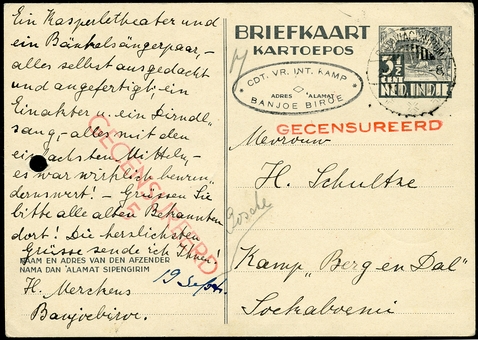 Ein Kasperletheater und
ein Bänkelsängerpaar, –
alles selbst ausgedacht
und angefertigt, ein
Einakter, ein Dirndl=
sang, – alles mit den
einfachsten Mitteln, –
es war wirklich bewun=
dernswert! – Grüssen Sie
bitte alle alten Bekannten
dort! Die herzlichsten
Grüsse sende ich Ihnen!
NAAM EN ADRES VAN DEN AFZENDER
NAMA DAN 'ALAMAT SIPENGIRIM
19 Sept.
H. Merckens
Banjoebiroe.
GECENSUREERD
BRIEFKAART
KARTOEPOS
CDT. VR. INT. KAMP
ADRES 'ALAMAT
BANJOE BIROE
3½
CENT
NED. INDIE
GECENSUREERD
Mevrouw
H. Schultze
Kamp „Berg en Dal"
Soekaboemi